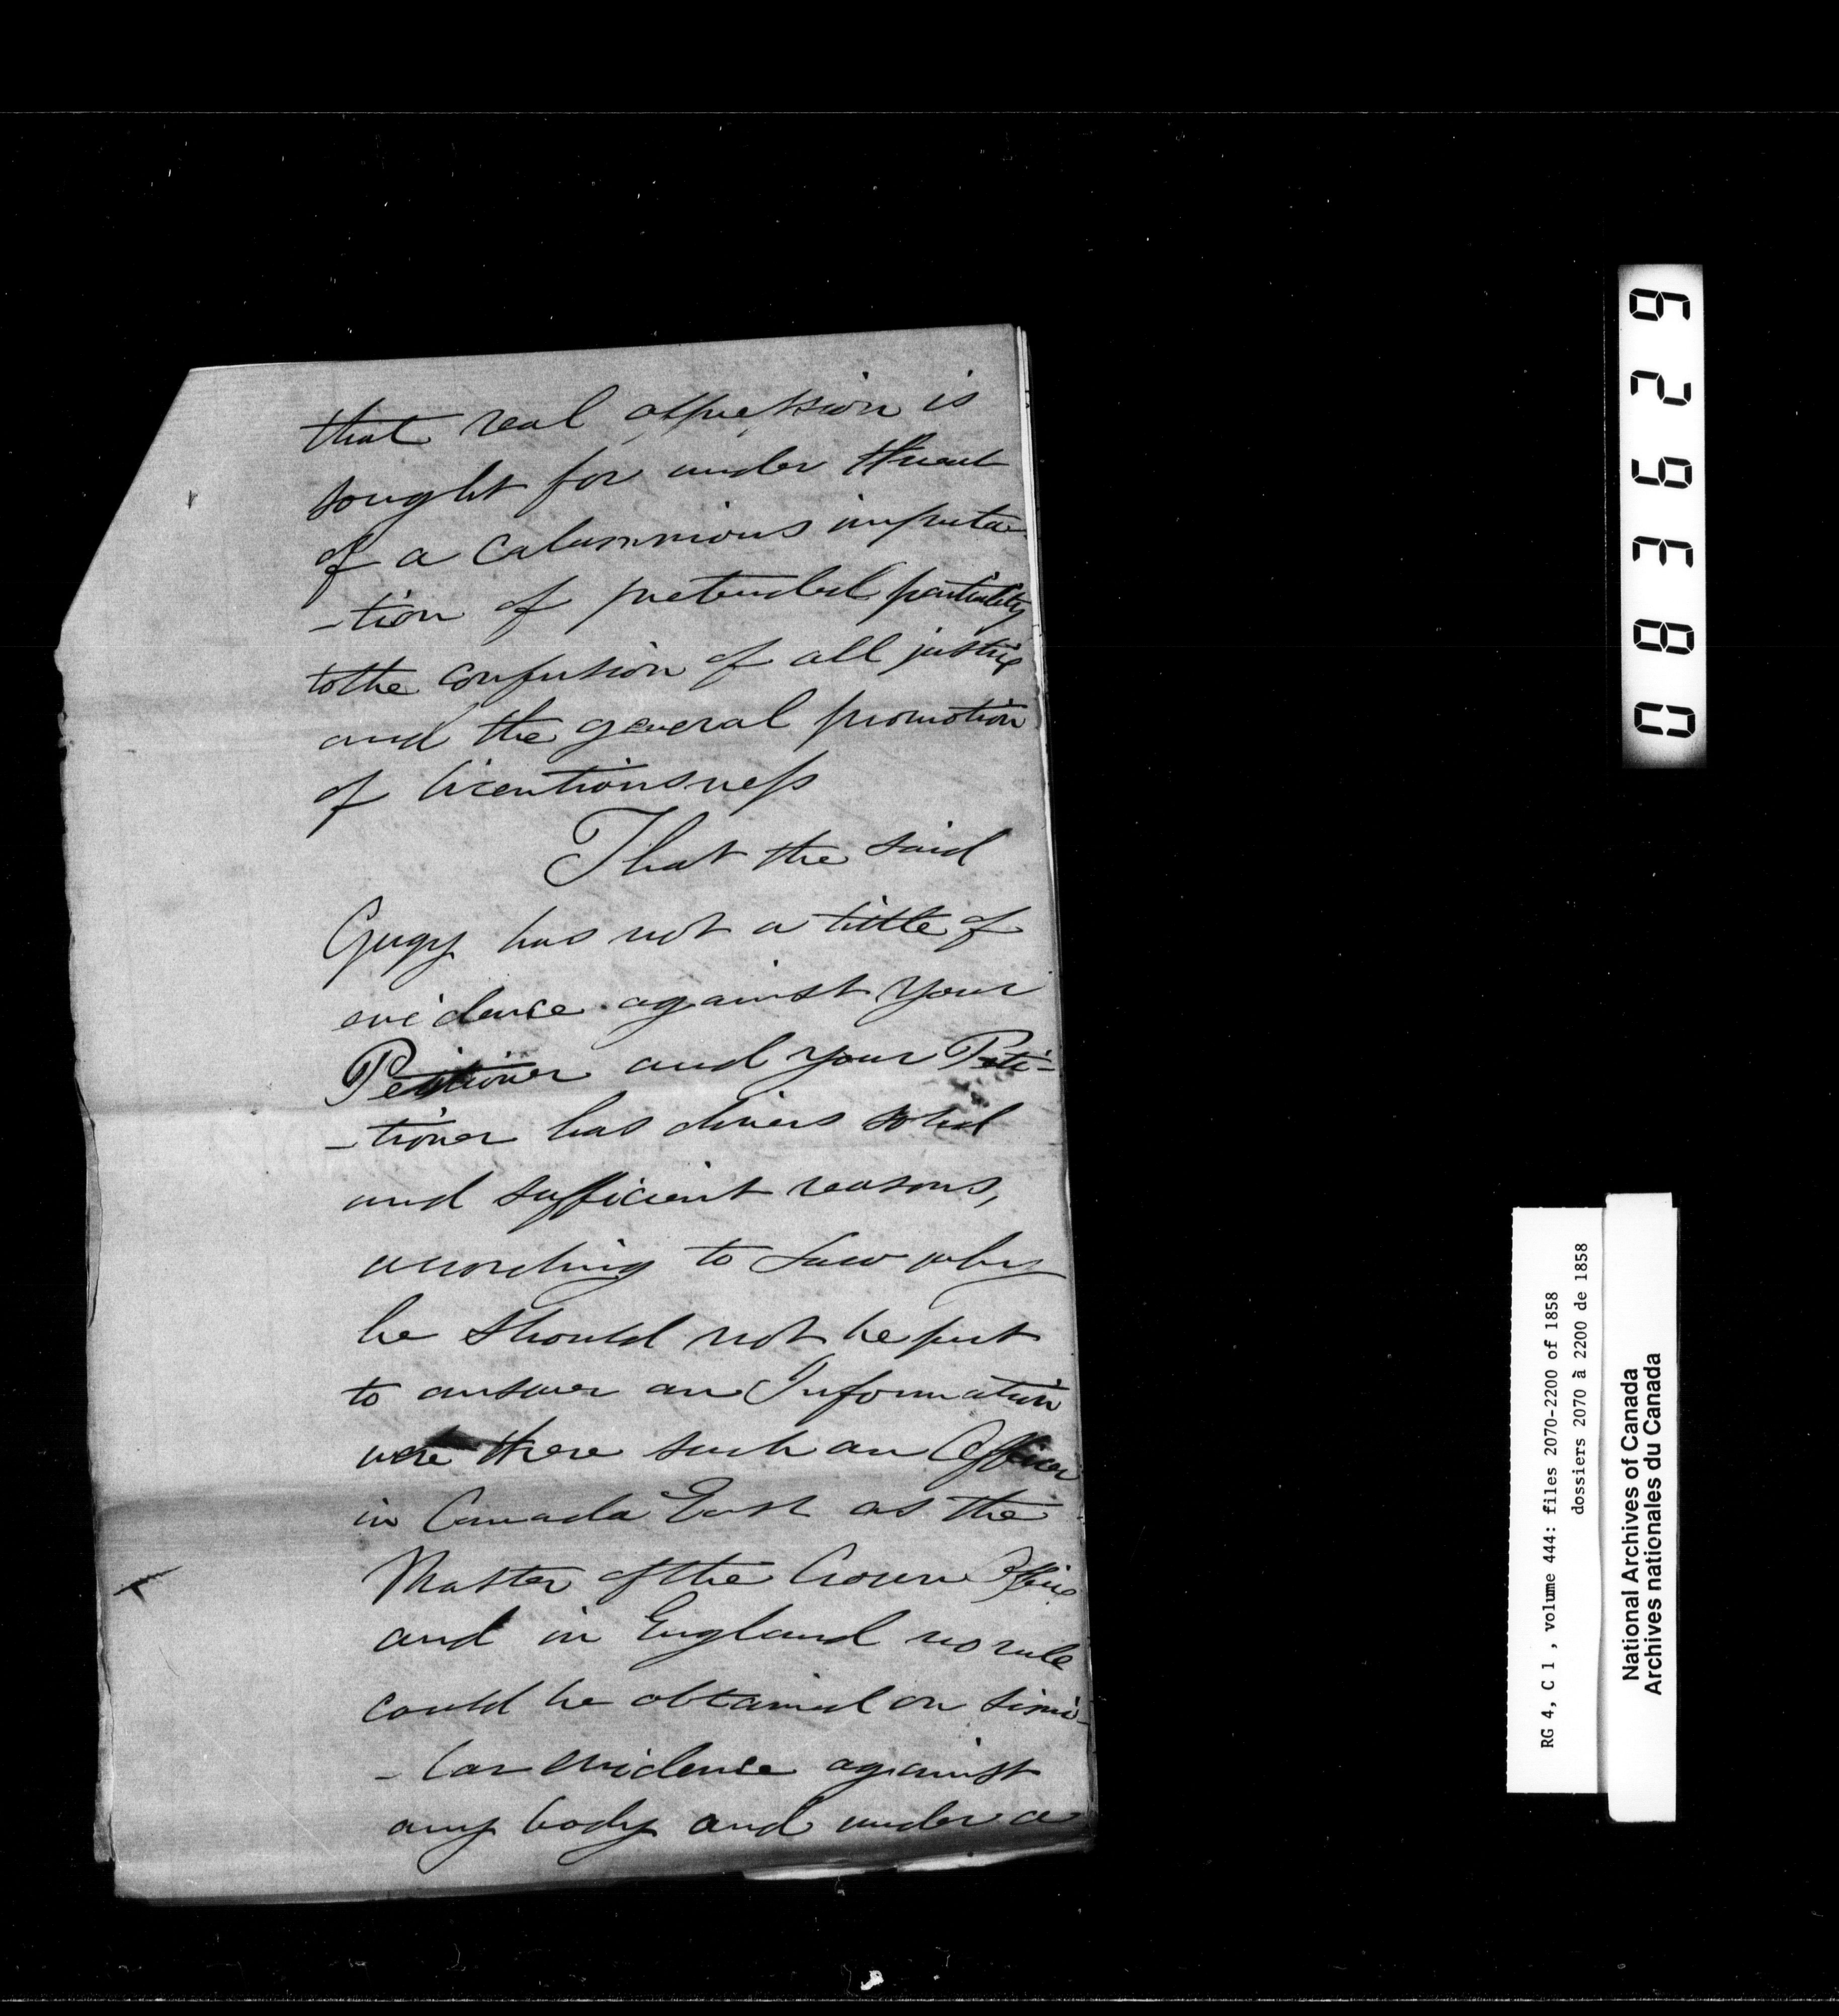 that real oppression is
sought for under threat
of a calumnious imputa
-tion of pretended partiality
to the confusion of all justice
and the general promotion
of licentiousness
That the said
Gugy has not a tittle of
evidence against your
Petitioner and your Peti-
-tioner has divers solid
and sufficient reasons,
according to Law why
he should not be put
to answer an Information
were there such an Officer
in Canada East as the
Master of the Crown Office
and in England no rule
could be obtained on simi-
-lar evidence against
any body and under a
083629
RG 4, C 1 , volume 444: files 2070-2200 of 1858
dossiers 2070 à 2200 de 1858
National Archives of Canada
Archives nationales du Canada